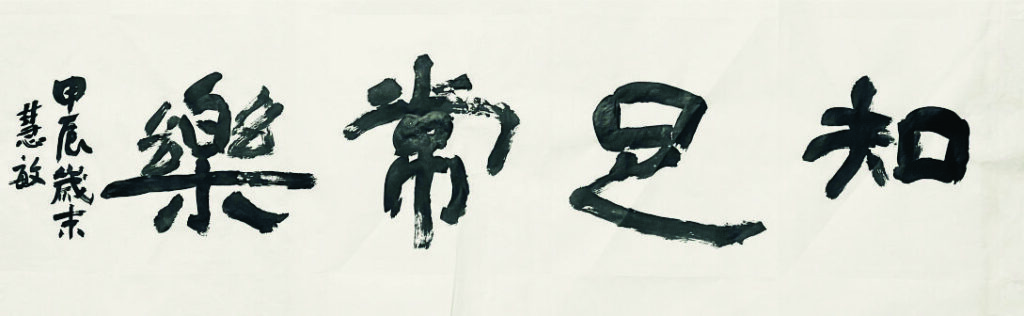 知足常樂
甲辰歲末
慧敏